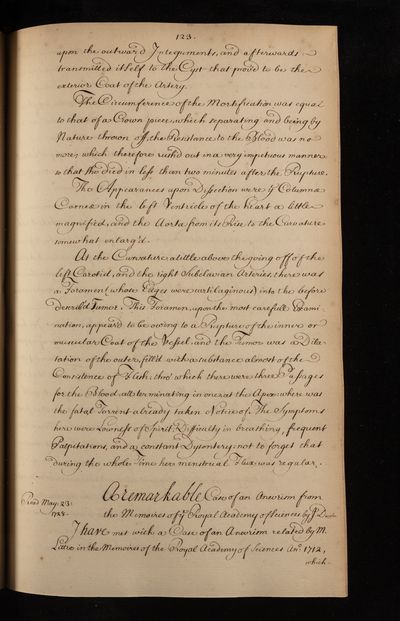 123.
upon the outward Integuments, and afterwards
transmitted itself to the Cyst that prov'd to be the
exterior Coat of the Artery.
The Circumference of the Mortification was equal
to that of a Crown piece, which separating and being by
Nature thrown off, the Resistance to the Blood was no
more; which therefore rush'd out in a very impetuous manner
so that she died in less than two minutes after the Rupture.
The Appearances upon Dissection were ye Columnæ
Carneæ in the left Ventricle of the Heart a little
magnified, and the Aorta from its Rise to the Curvature
somewhat enlarg'd.
At the Curvature a little above the going off of the
left Carotid, and the right Subclavian Arteries, there was
a Foramen (whose Edges were cartilaginous) into the before
describ'd Tumor. This Foramen, upon the most carefull Exami-
nation, appear'd to be owing to a Rupture of the inner or
muscular Coat of the Vessel, and the Tumor was a Dila-
tation of the outer, fill'd with a substance almost of the
Consistence of Flesh, thro' which there were three Passages
for the Blood, all terminating in one at the Apex where was
the fatal Torrent already taken Notice of. The Symptoms
here were Lowness of Spirit, Difficulty in breathing, frequent
Palpitations, and a constant Dysentery: not to forget that
during the whole Time her menstrual Flux was regular.
A remarkable Case of an Aneurism from
Read May. 23.
1728.
the Memoires of ye Royal Academy of Sciences by Jn
I have met with a Case of an Aneurism related by M.
in the Memoires of the Royal Academy of Sciences Ano. 1712,
which